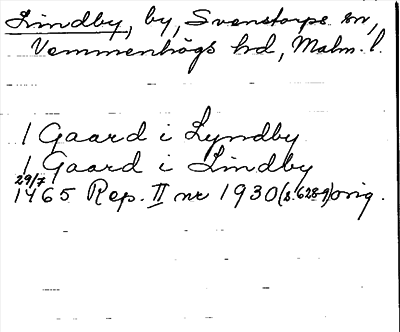 Lindby, by, Svenstorps sn,
Vemmenhögs hd, Malm. l.
1 Gaard i Lyndby
1 Gaard i Lindby
29/7
1465 Rep. II nr 1930 (s. 628 f) orig.